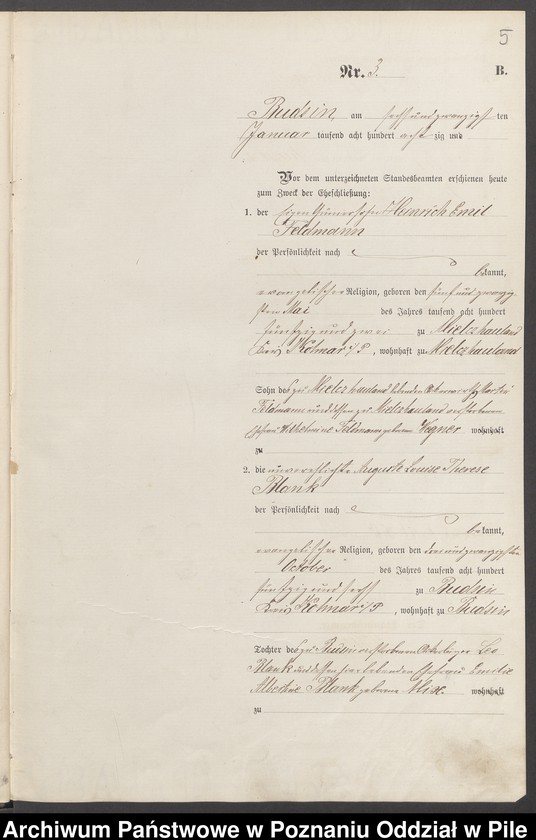 5
Nr. 3. B.
Budsin, am sechsundzwanzigsten
Januar tausend acht hundert achtzig und
Vor dem unterzeichneten Standesbeamten erschienen heute
zum Zweck der Eheschließung:
1. der Eigenthümersohn Heinrich Emil
Feldmann
der Persönlichkeit nach
bekannt,
evangelischer Religion, geboren den fünf und zwanzig
sten Mai des Jahres tausend acht hundert
fünfzig und zwei zu
Kreis Kolmar i/P, wohnhaft zu
Sohn des zu lebenden
Feldmann und dessen zu verstorbenen
Ehefrau Wilhelmine Feldmann geborene Wegner wohnhaft
zu
2. die unverehelichte Auguste Louise Therese
Blank
der Persönlichkeit nach
bekannt,
evangelischer Religion, geboren den drei und zwanzigsten
October des Jahres tausend acht hundert
fünfzig und sechs zu Budsin
Kreis Kolmar i/P, wohnhaft zu Budsin
Tochter des zu Budsin verstorbenen Ackerbürger Leo
Blank und dessen Ehefrau Emilie
Albertine Blank geborene wohnhaft
zu
Archiwum Państwowe w Poznaniu Oddział w Pile